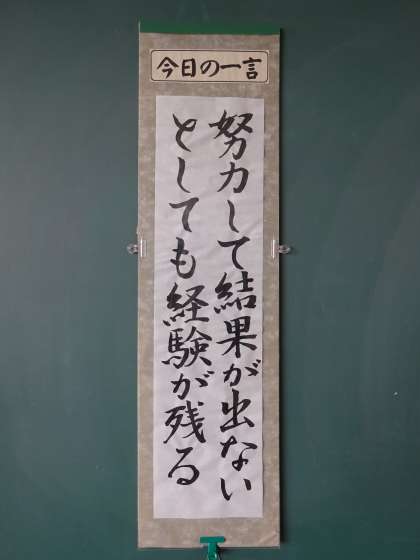 今日の一言
努力して結果が出ない
としても経験が残る